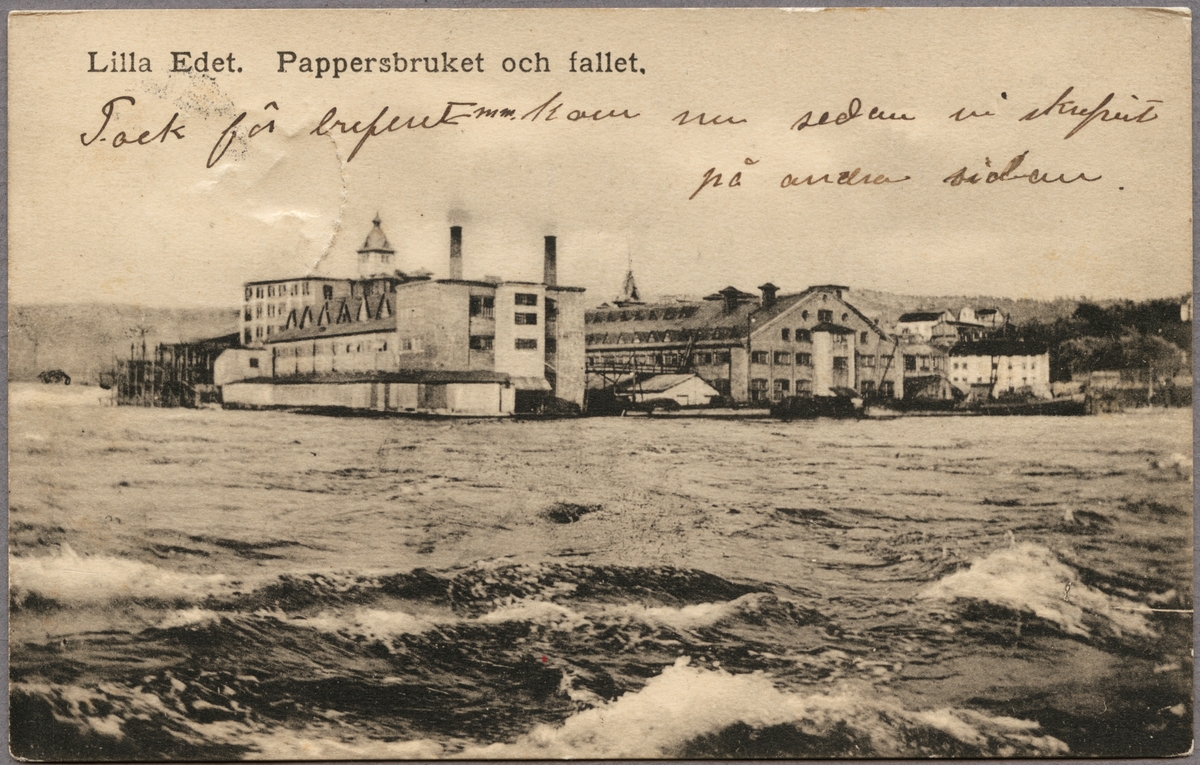 Lilla Edet. Pappersbruket och fallet.
Tack för brefvet mm. Kom nu sedan vi skrifvit
på andra sidan.